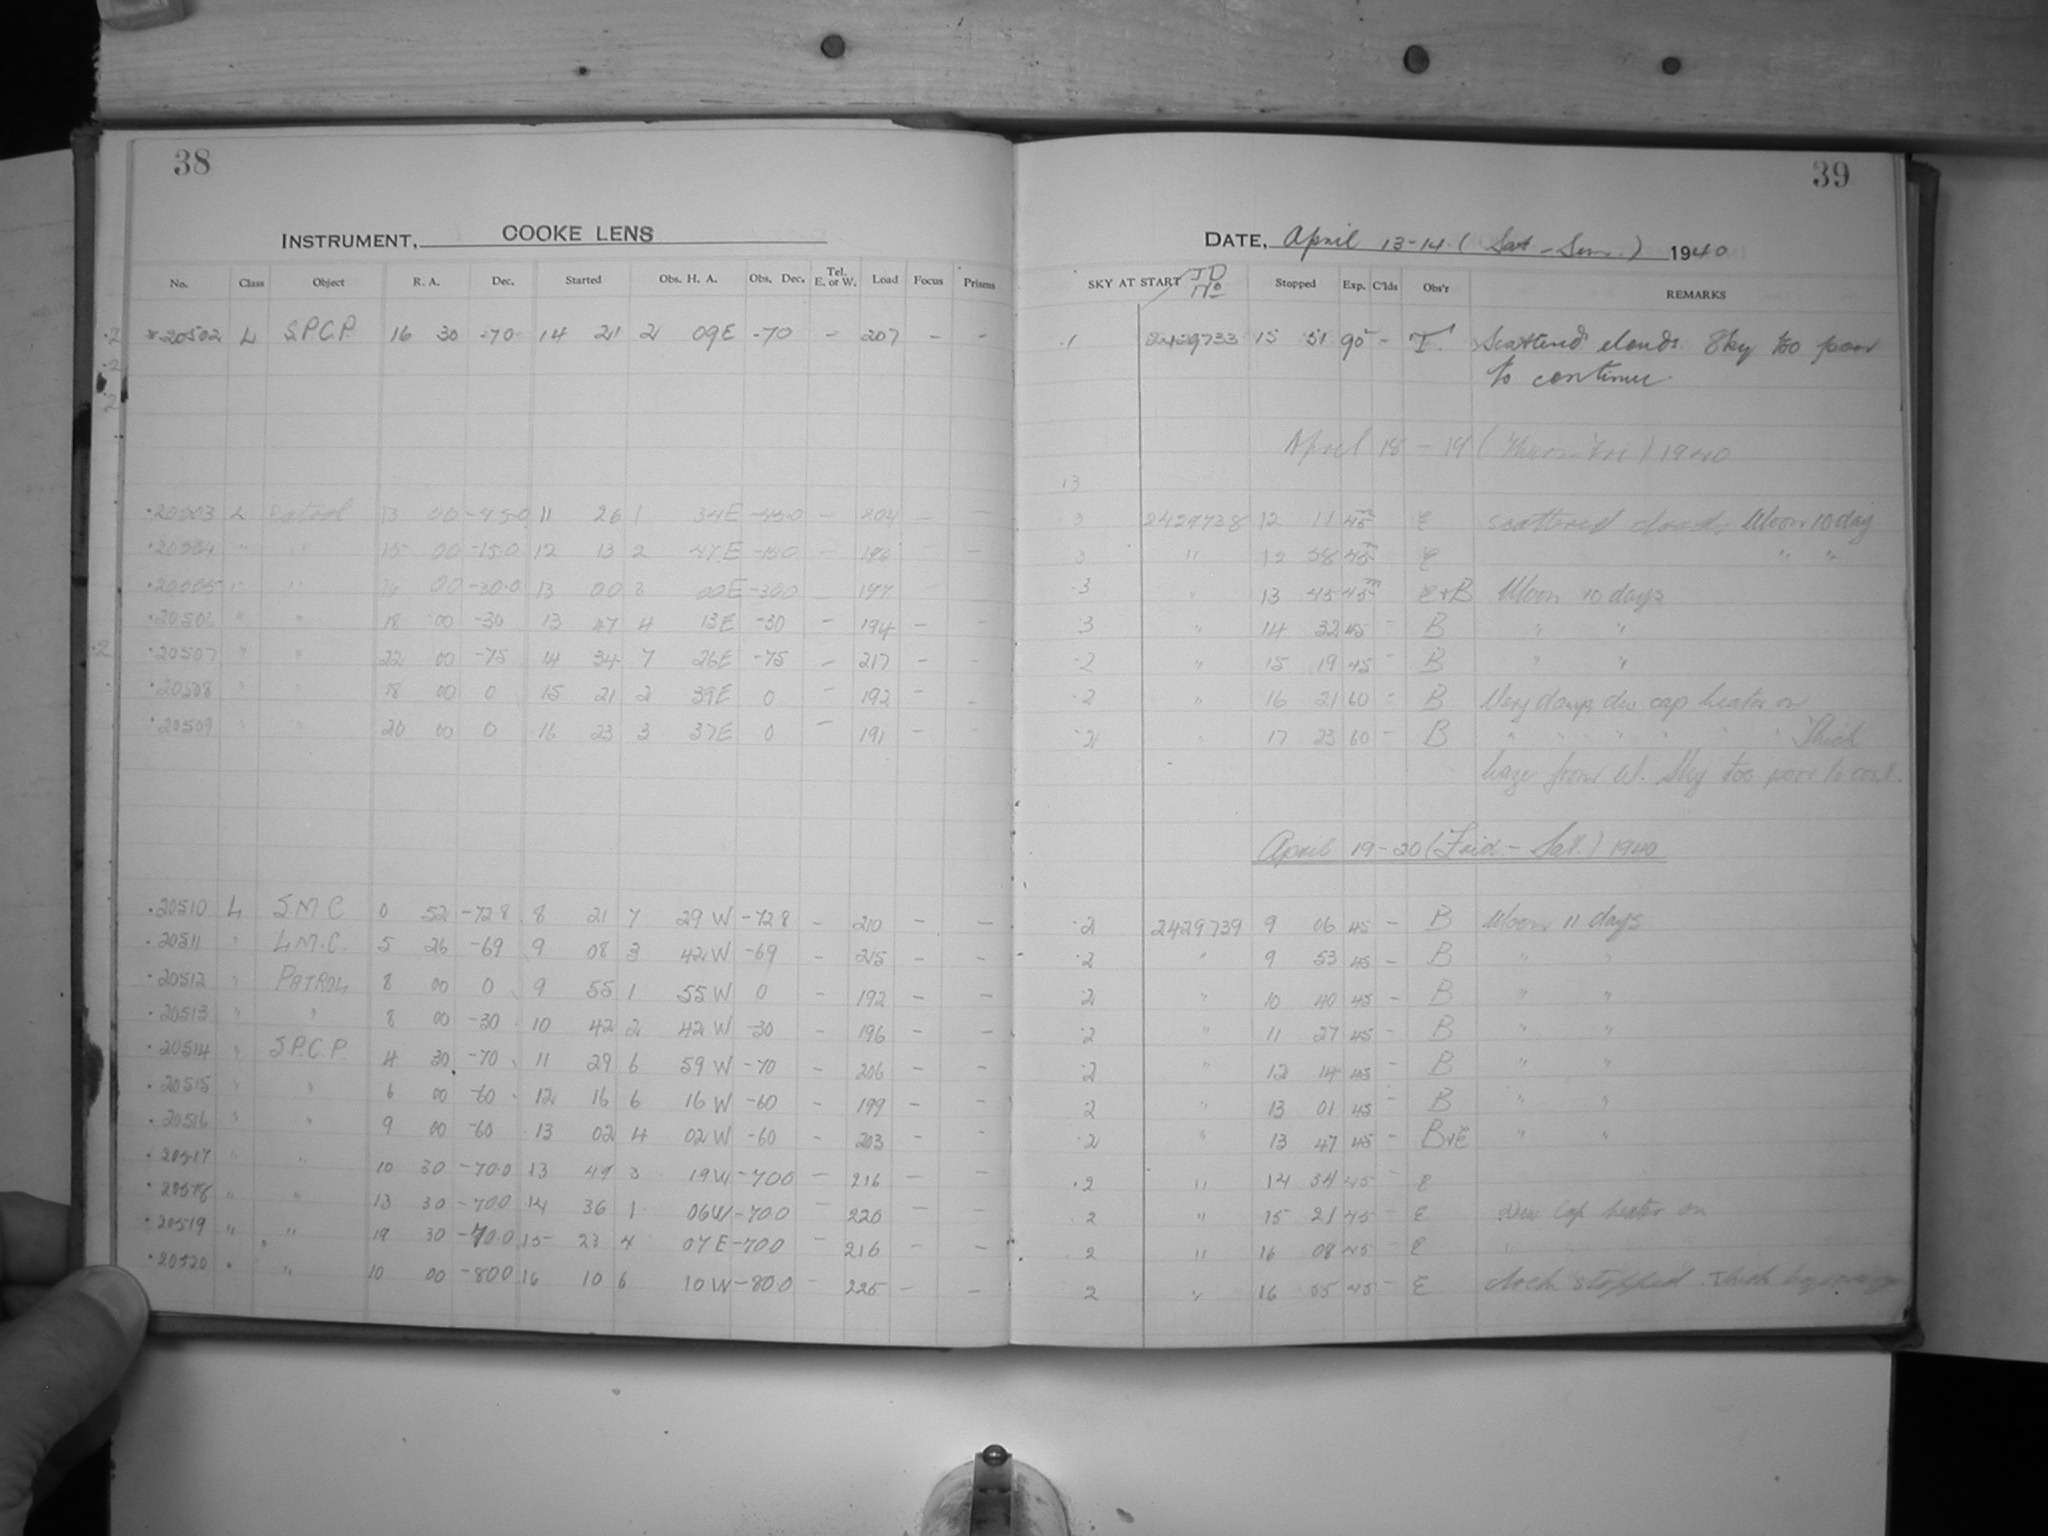 38
INSTRUMENT, COOKE LENS
No. Class Object R. A. Dec. Started Obs. H. A. Obs. Dec. Tel. E. or W. Load Focus Prisms
*20502 L S.P.C.P. 16 30 -70 14 21 2 09E -70 - 207 - -
20503 L Patrol 13 00 -45.0 11 26 1 34E -45.0 - 204 - -
20504 " " 15 00 -15.0 12 13 2 47E -15.0 - 186 - -
20505 " " 16 00 -30.0 13 00 3 00E -30.0 - 197 - -
20506 " " 18 00 -30 13 47 4 13E -30 - 194 - -
20507 " " 22 00 -75 14 34 7 26E -75 - 217 - -
20508 " " 18 00 0 15 21 2 39E 0 - 192 - -
20509 " " 20 00 0 16 23 3 37E 0 - 191 - -
20510 L S.M.C 0 52 -72.8 8 21 7 29 W -72.8 - 210 - -
20511 " L.M.C. 5 26 -69 9 08 3 42 W -69 - 215 - -
20512 " PATROL 8 00 0 9 55 1 55 W 0 - 192 - -
20513 " " 8 00 -30 10 42 2 42 W -30 - 196 - -
20514 " S.P.C.P. 4 30 -70 11 29 6 59 W -70 - 206 - -
20515 " " 6 00 -60 12 16 6 16 W -60 - 199 - -
20516 " " 9 00 -60 13 02 4 02 W -60 - 203 - -
20517 " " 10 30 -70.0 13 49 3 19 W -70.0 - 216 -
20518 " " 13 30 -70.0 14 36 1 06W -70.0 - 220 - -
20519 " " 19 30 -70.0 15 23 4 07 E -70.0 - 216 - -
20520 " " 10 00 -80.0 16 10 6 10 W -80.0 - 225 - -
39
DATE, April 13-14 (Sat - Sun.) 1940
SKY AT START JD No Stopped Exp. C'lds Obs'r REMARKS
.1 2429733 15 51 90 - T. Scattered clouds. Sky too poor
to continue
April 18 - 19 (Thurs-Fri) 1940
3 2429738 12 11 45m E scattered clouds Moon 10 day
3 " 12 58 45m E " "
3 " 13 45 45m E+B Moon 10 days
3 " 14 32 45 - B " "
2 " 15 19 45 - B " "
2 " 16 21 60 - B Very damp dew cap heater on
2 " 17 23 60 - B " " " " " " Thick
haze from W. Sky too poor to cont.
April 19-20 (Frid. - Sat.) 1940
2 2429739 9 06 45 - B Moon 11 days
2 " 9 53 45 - B " "
2 " 10 40 45 - B " "
2 " 11 27 45 - B " "
2 " 12 14 45 - B " "
2 " 13 01 45 - B " "
2 " 13 47 45 - B+E " "
2 " 14 34 45 - E
2 " 15 21 45 - E Dew Cap heater on
2 " 16 08 45 - E "
2 " 16 55 45 - E clock stopped. Thick